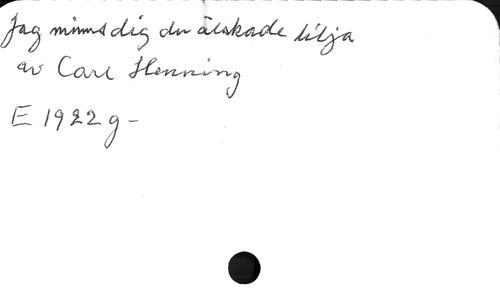 Jag minns dig du älskade lilja
av Carl Henning
E 1922 g-